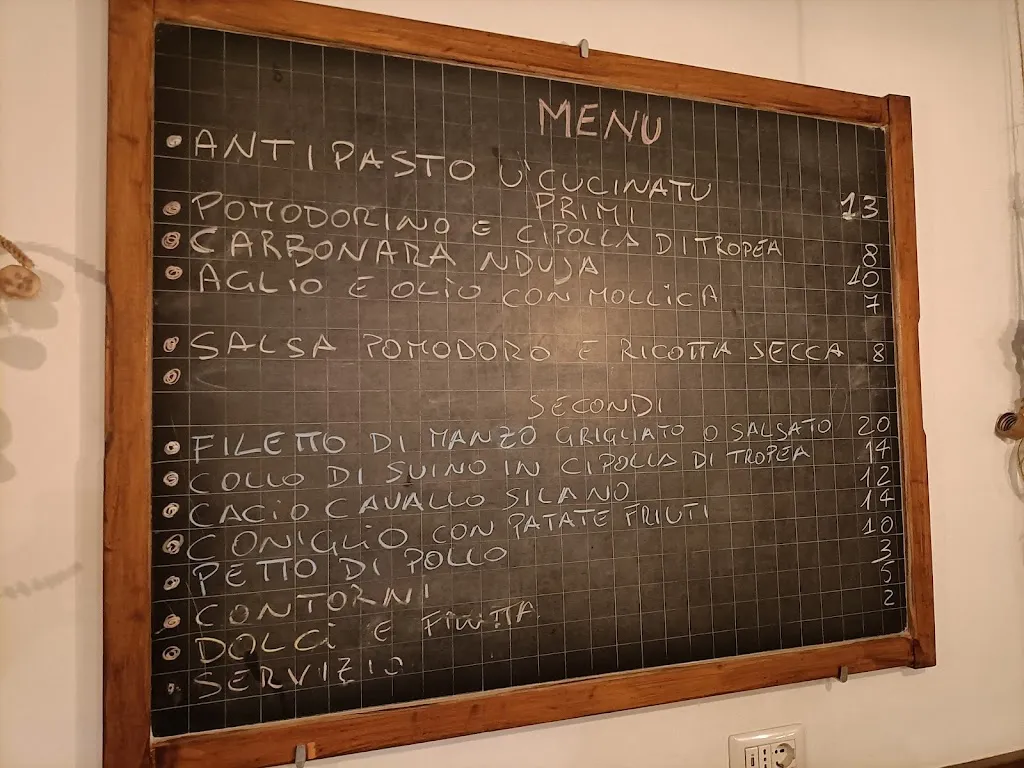 MENU
• ANTIPASTO U' CUCINATU 13
PRIMI
• POMODORINO E CIPOLLA DI TROPEA 8
• CARBONARA NDUJA 10
• AGLIO E OLIO CON MOLLICA 7
• SALSA POMODORO E RICOTTA SECCA 8
•
SECONDI
• FILETTO DI MANZO GRIGLIATO O SALSATO 20
• COLLO DI SUINO IN CIPOLLA DI TROPEA 14
• CACIO CAVALLO SILANO 12
• CONIGLIO CON PATATE FRIUTI 14
• PETTO DI POLLO 10
• CONTORNI 3
• DOLCI E 5
• SERVIZIO 2